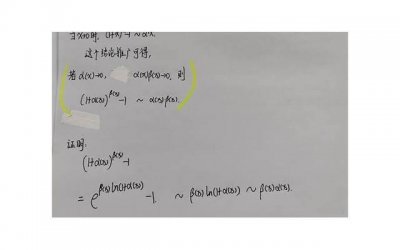 当x→0时, (1+x)^α-1 ~ αx.
这个结论推广可得,
若 α(x)→0, α(x)β(x)→0, 则
(1+α(x))^β(x) -1 ~ α(x)β(x).
证明:
(1+α(x))^β(x) -1
= e^β(x)ln(1+α(x)) -1. ~ β(x)ln(1+α(x)) ~ β(x)α(x).